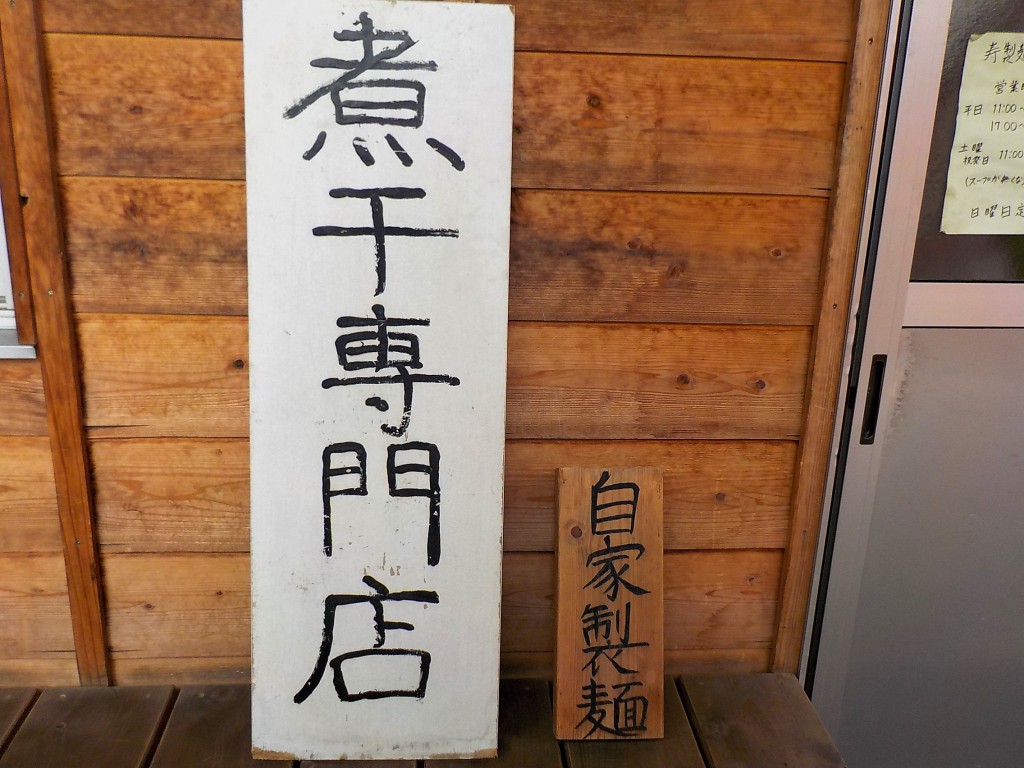 煮干専門店
自家製麺
寿製
営業
平日 11:00~
17:00~
土曜
祝祭日 11:00
(スープが無くな
日曜日定